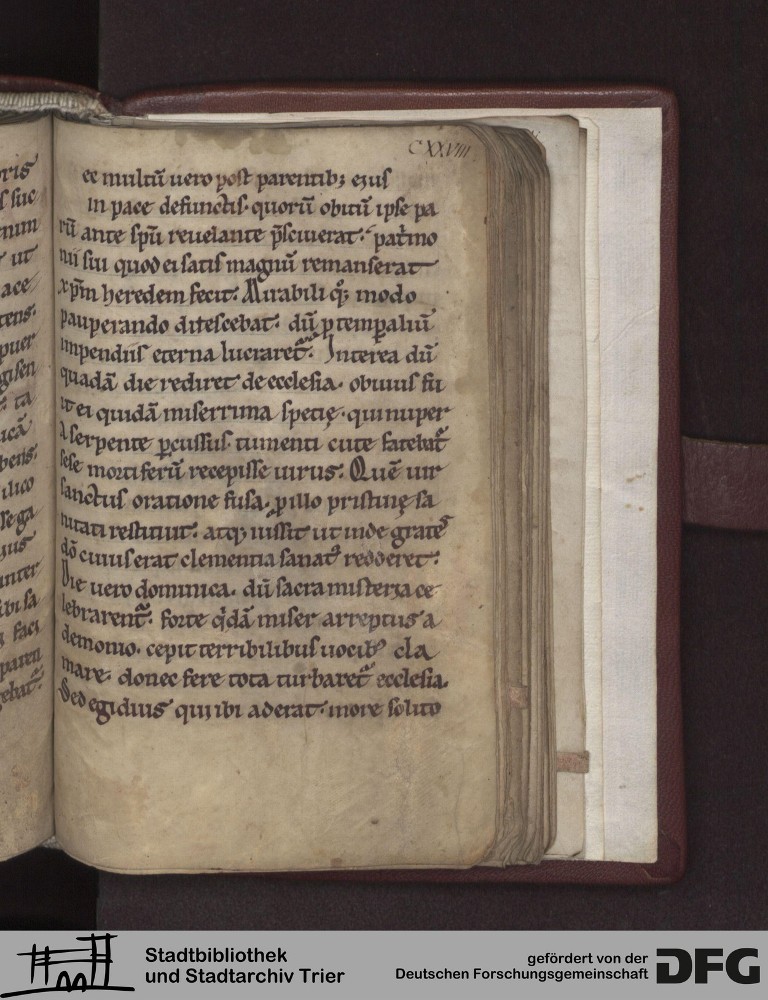 CXXVIII
ee multũ uero post parentib; eıus
in pace defunctis· quorũ obitũ ipse pa
rũ ante spũ reuelante p̃sciuerat· pat̃mo
nii sui quod ei satis magnũ remanserat
xp̃m heredem fecit· Mirabili q̃; modo
pauperando ditescebat· dũ ꝑ temꝑaliũ
impendiis eterna lucraret̃· Interea dũ
quadã die rediret de ecclesia· obuius fu
it ei quidã miserrima specię· qui nuper
a serpente ꝑcussus tumenti cute fatebat̃
sese mortiferũ recepisse uirus· Quẽ uir
sanctus oratione fusa, ꝓ illo pristinę sa
nitati restituit· atq; iussit ut inde grates
dõ cuius erat clementia sanatꝰ redderet·
Die uero dominica· dũ sacra misteria ce
lebrarent̃· forte q̇dã miser arreptus a
demonio· cepit terribilibus uocibꝰ cla
mare· donec fere tota turbaret̃ ecclesia·
Sed egidius qui ibi aderat· more solito
Stadtbibliothek
und Stadtarchiv Trier
gefördert von der
Deutschen Forschungsgemeinschaft
DFG